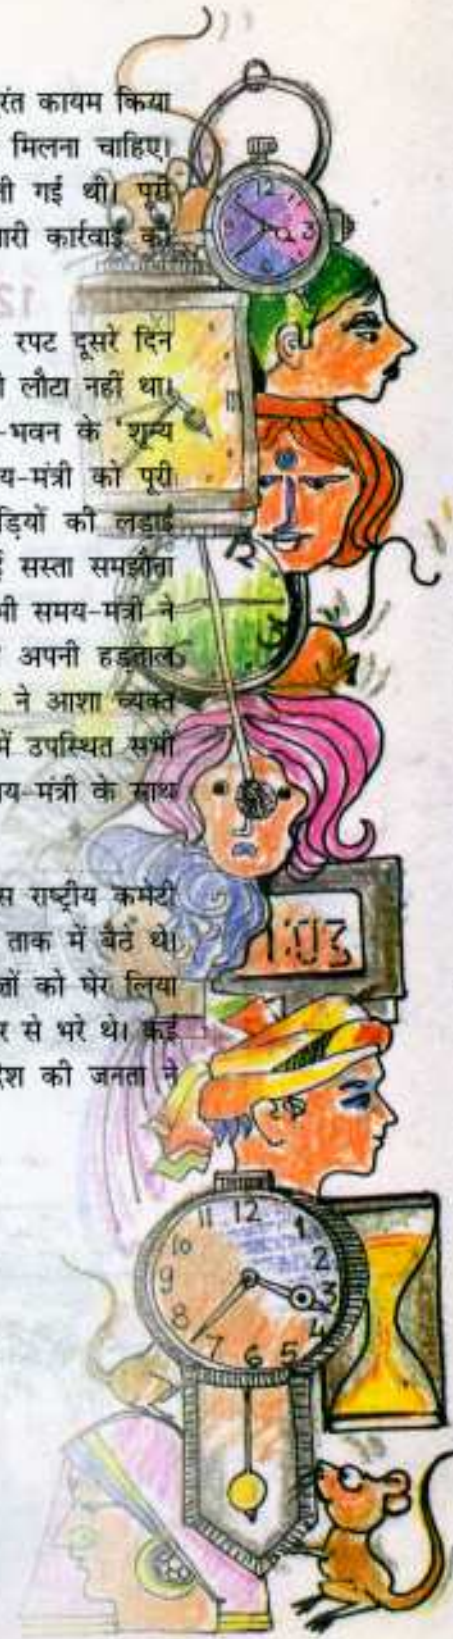 रंत कायम किया
मिलना चाहिए।
गई थी। पूरी
कार्रवाई
12
रपट दूसरे दिन
लौटा नहीं था।
-भवन के 'शून्य
य-मंत्री को पूरी
ड़ियों की लड़ाई
सस्ता समझौता
भी समय-मंत्री ने
अपनी हड़ताल
ने आशा व्यक्त
में उपस्थित सभी
य-मंत्री के साथ
स राष्ट्रीय कमेटी
ताक में बैठे थे।
को घेर लिया
र से भरे थे। कई
देश की जनता ने
12
3
1:03
11 12 1
10 2
9 3
8 4
7 6 5